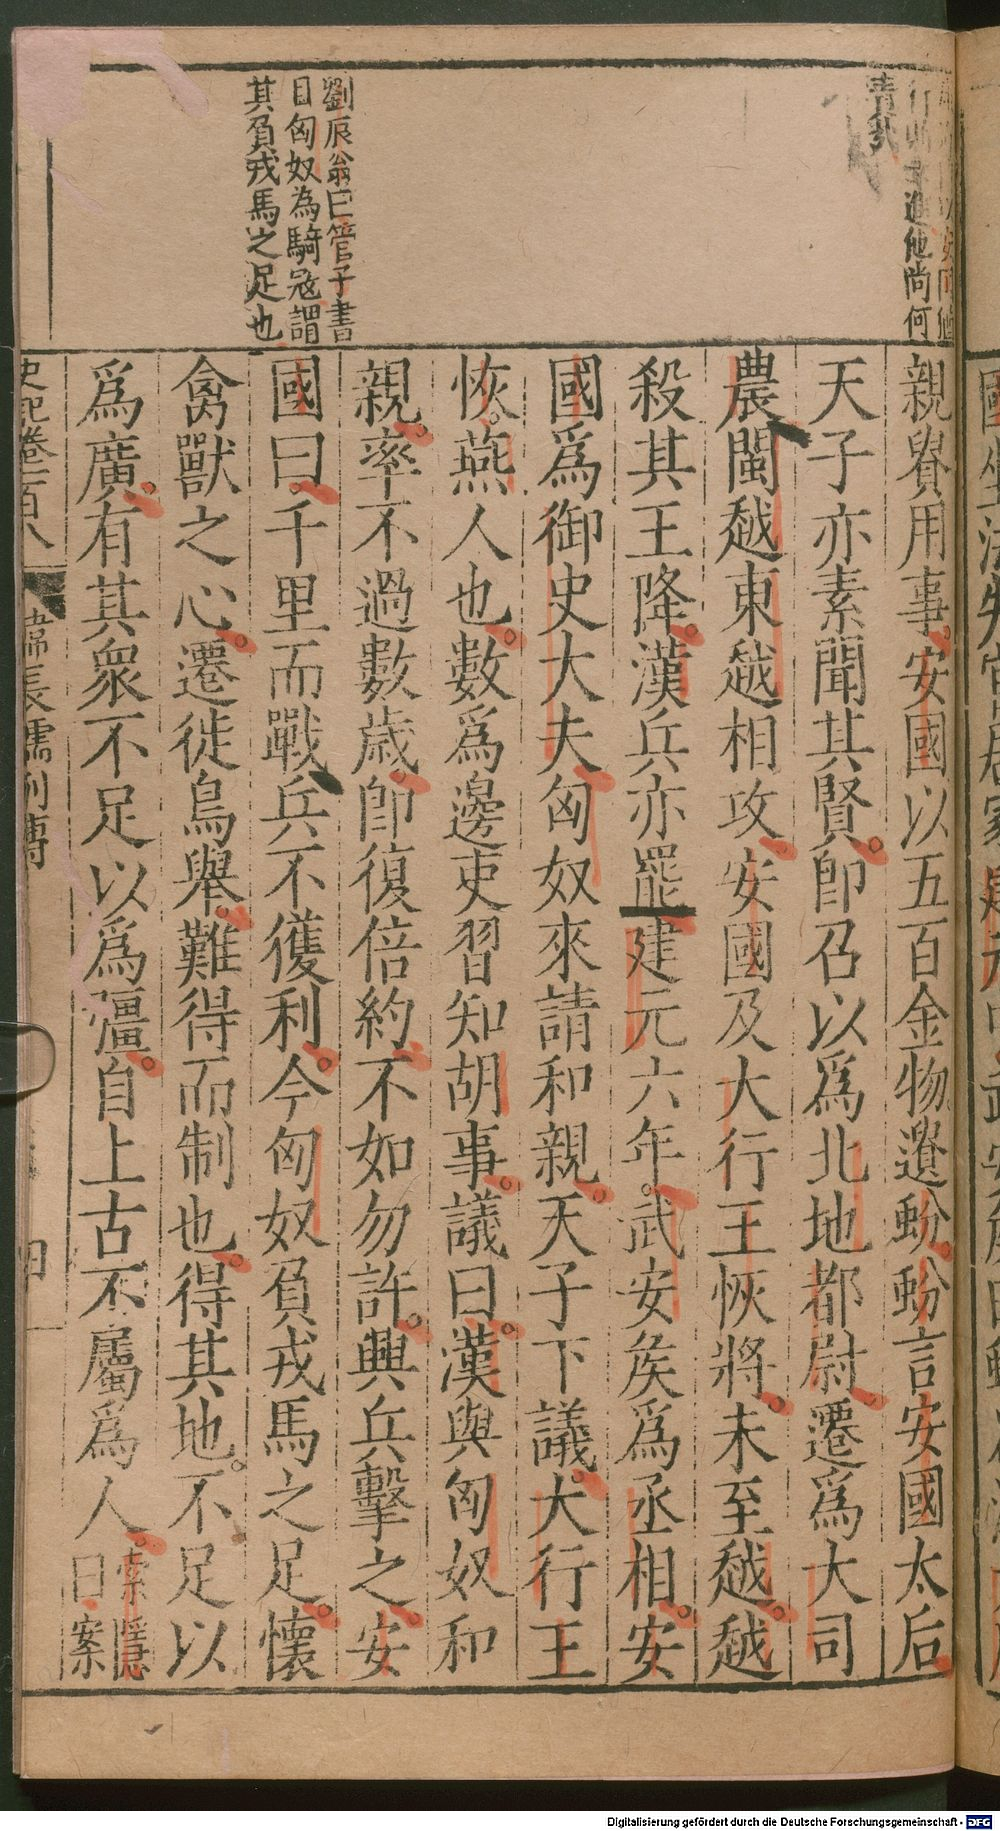 進他尚何
請我
劉辰翁曰管子書
目匈奴為騎寇謂
其負戎馬之足也
親貴用事安國以五百金物遺蚡蚡言安國太后
天子亦素聞其賢卽召以爲北地都尉遷爲大司
農閩越東越相攻安國及大行王恢將未至越越
殺其王降漢兵亦罷建元六年武安侯爲丞相安
國爲御史大夫匈奴來請和親天子下議大行王
恢燕人也數爲邊吏習知胡事議曰漢與匈奴和
親率不過數歲卽復倍約不如勿許興兵擊之安
國曰千里而戰兵不獲利今匈奴負戎馬之足懷
禽獸之心遷徙鳥舉難得而制也得其地不足以
爲廣有其衆不足以爲彊自上古不屬爲人索隱
曰案
史記卷一百八 韓長孺列傳 四
Digitalisierung gefördert durch die Deutsche Forschungsgemeinschaft - DFG